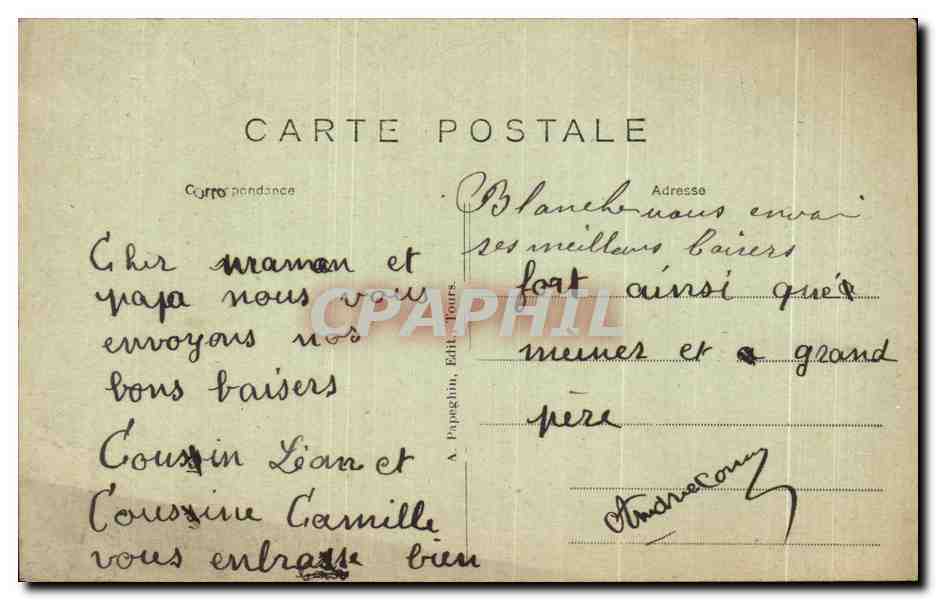 CARTE POSTALE
Correspondance
Adresse
Cher maman et
papa nous vous
envoyons nos
bons baisers
Coussin Léon et
Cousine Camille
vous enbrasse bien
A. Papeghin, Edit., Tours.
Blanche vous envoi
ses meilleurs baisers
fort ainsi que
memer et a grand
père
CPAPHIL